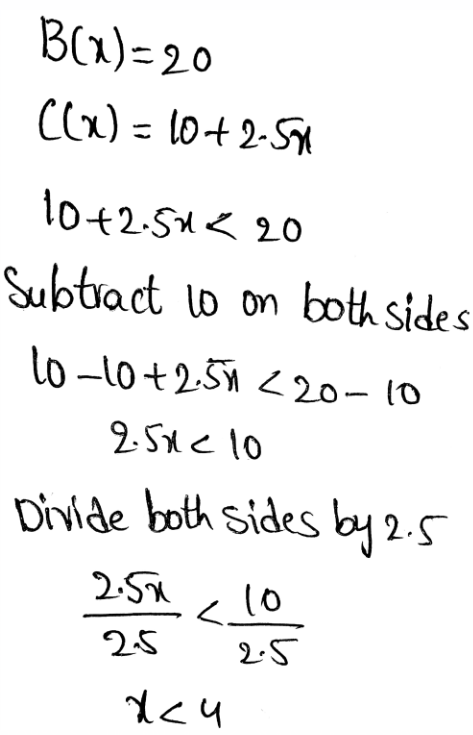 B(x)=20
C(x) = 10+2.5x
10+2.5x < 20
Subtract 10 on both sides
10-10+2.5x < 20-10
2.5x < 10
Divide both sides by 2.5
2.5x/2.5 < 10/2.5
x<4